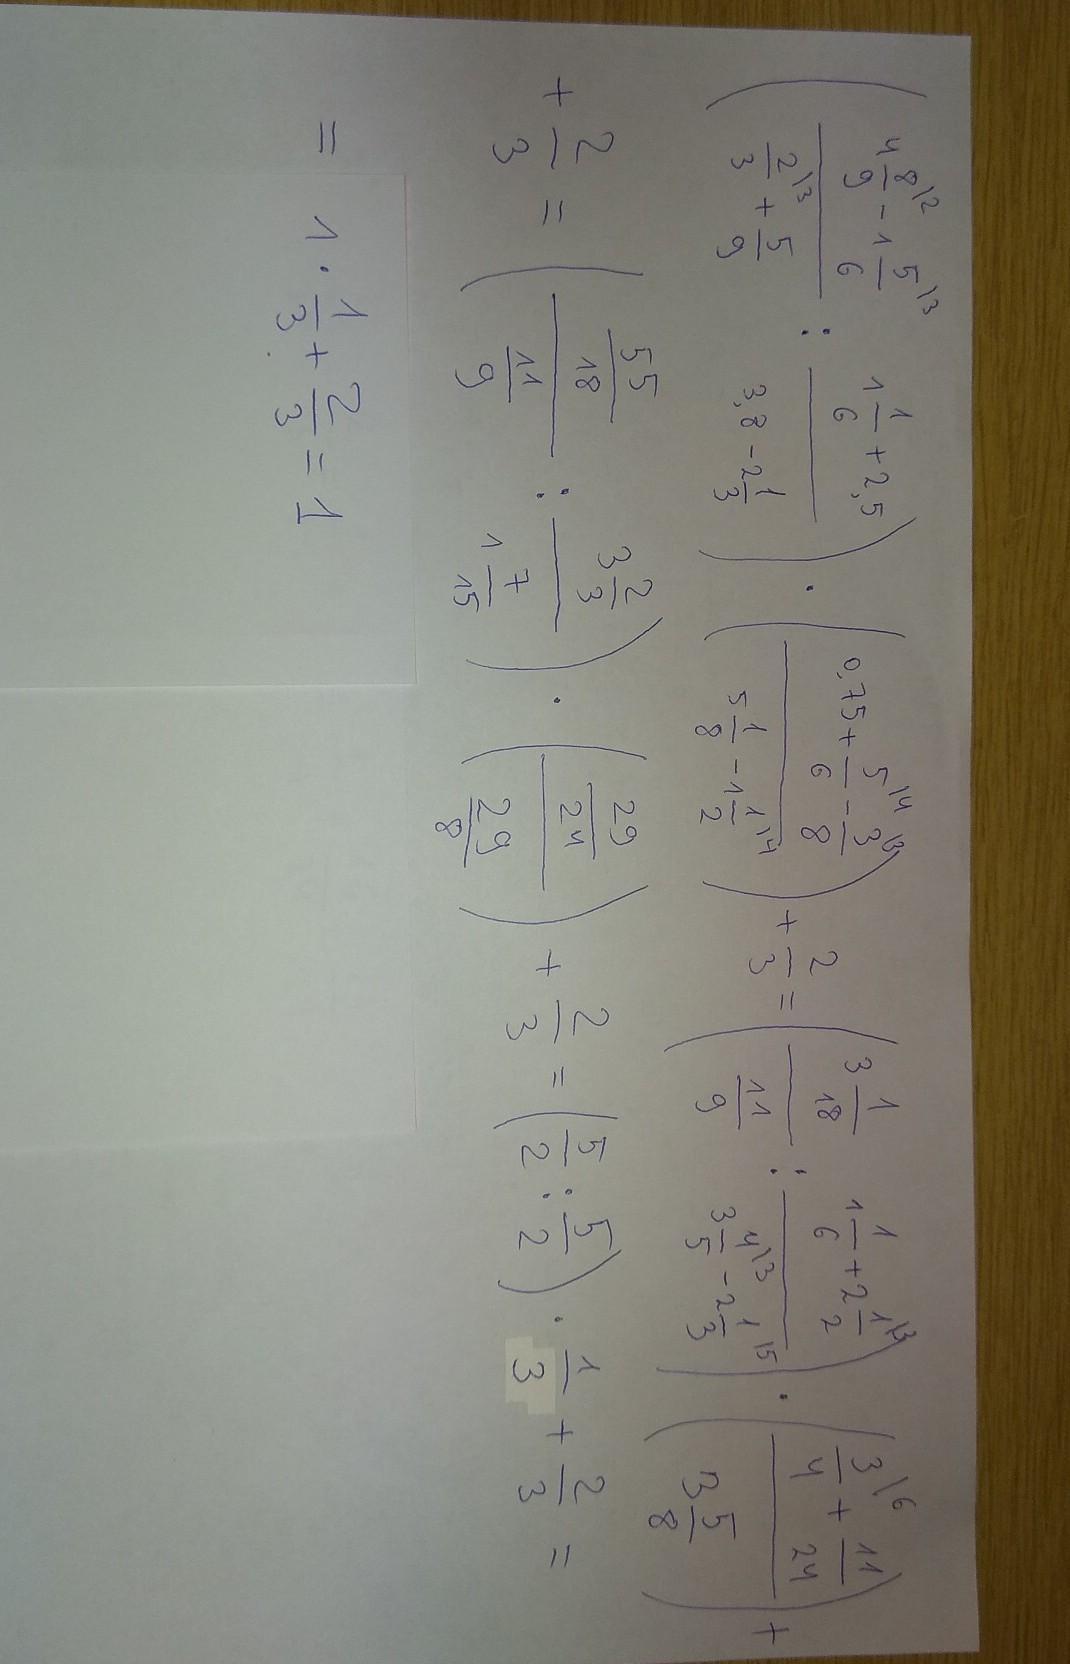 ( (4 8\2/9 - 1 5\3/6) / (2\3/3 + 5/9) : (1 1/6 + 2,5) / (3,8 - 2 1/3) ) · ( (0,75 + 5\4/6 - 3\3/8) / (5 1/8 - 1 1\4/2) ) + 2/3 = ( (3 1/18) / (11/9) : (1 1/6 + 2 1\3/2) / (3 4\3/5 - 2 1\5/3) ) · ( (3\6/4 + 11/24) / (3 5/8) ) +
+ 2/3 = ( (55/18) / (11/9) : (3 2/3) / (1 7/15) ) · ( (29/24) / (29/8) ) + 2/3 = ( 5/2 : 5/2 ) · 1/3 + 2/3 =
= 1 · 1/3 + 2/3 = 1